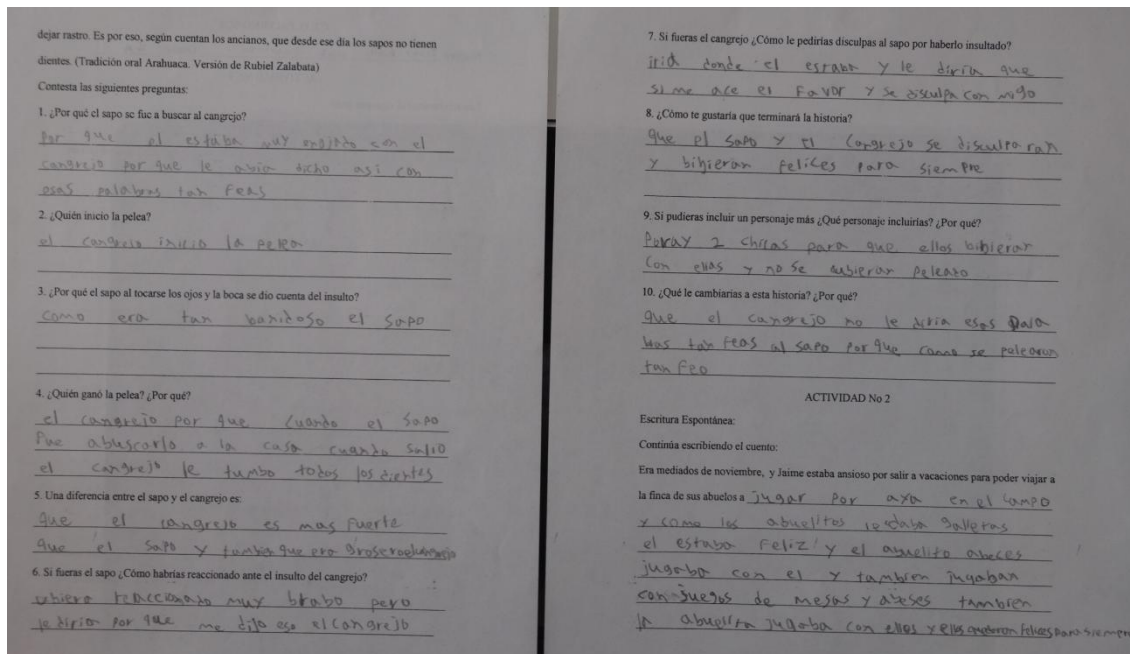 dejar rastro. Es por eso, según cuentan los ancianos, que desde ese día los sapos no tienen
dientes. (Tradición oral Arahuaca. Versión de Rubiel Zalabata)
Contesta las siguientes preguntas:
1. ¿Por qué el sapo se fue a buscar al cangrejo?
Por que el estaba muy enojado con el
cangrejo por que le avia dicho asi con
esas palabras tan feas
2. ¿Quién inicio la pelea?
el cangrejo inicio la pelea
3. ¿Por qué el sapo al tocarse los ojos y la boca se dio cuenta del insulto?
como era tan banidoso el sapo
4. ¿Quién ganó la pelea? ¿Por qué?
el cangrejo por que cuando el sapo
Fue abuscarlo a la casa cuando salio
el cangrejo le tumbo todos los dientes
5. Una diferencia entre el sapo y el cangrejo es:
que el cangrejo es mas fuerte
que el sapo y tambien que era grosero
6. Si fueras el sapo ¿Cómo habrías reaccionado ante el insulto del cangrejo?
ubiera reaccionado muy brabo pero
le diria por que me dijo eso el cangrejo
7. Si fueras el cangrejo ¿Cómo le pedirías disculpas al sapo por haberlo insultado?
iria donde el estaba y le diria que
si me ace el favor y se disculpa con migo
8. ¿Cómo te gustaría que terminará la historia?
que el sapo y el cangrejo se disculparan
y bibieran felices para siempre
9. Si pudieras incluir un personaje más ¿Qué personaje incluirías? ¿Por qué?
2 chicas para que ellos bibieran
con ellas y no se aubieran peleado
10. ¿Qué le cambiarias a esta historia? ¿Por qué?
que el cangrejo no le diria esas Pala
bras tan feas al sapo por que como se pelearon
tan feo
ACTIVIDAD No 2
Escritura Espontánea:
Continúa escribiendo el cuento:
Era mediados de noviembre, y Jaime estaba ansioso por salir a vacaciones para poder viajar a
la finca de sus abuelos a jugar por axa en el campo
y como los abuelitos le daba galletas
el estaba feliz y el abuelito abeces
jugaba con el y tambien jugaban
con juegos de mesas y abeses tambien
la abuelita jugaba con ellos y ellos felices para siempre